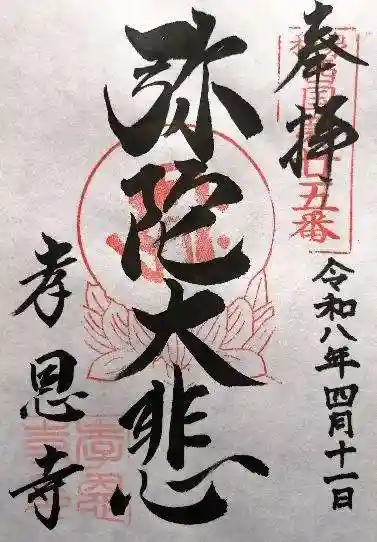 奉拝
五番
令和八年四月十一日
弥陀大悲
孝恩寺